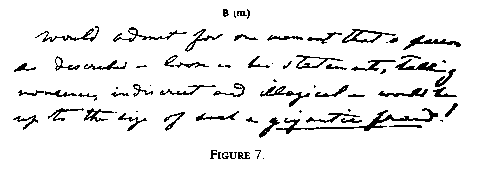 B (m.)
would admit for one moment that a person
as described – loose in his statements, talking
nonsense, indiscreet and illogical – would be
up to the size of such a gigantic fraud!
FIGURE 7.